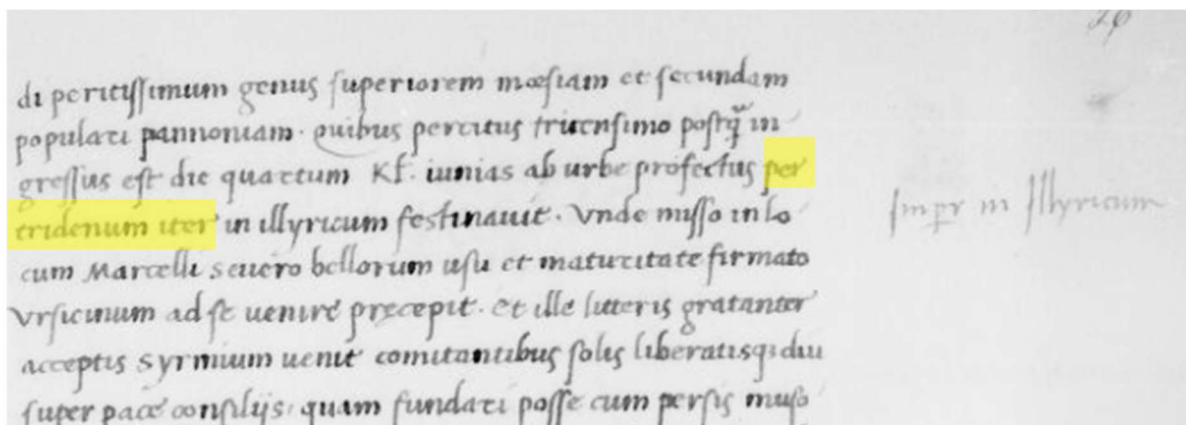 26
di peritissimum genus superiorem mœsiam et secundam
populati pannoniam. quibus percitus tricensimo postq̃ in
gressus est die quartum Kł. iunias ab urbe profectus per
tridenum iter in illyricum festinauit. Vnde misso in lo
cum Marcelli seuero bellorum usu et maturitate firmato
Vrsicinum ad se uenire pręcepit. et ille litteris gratanter
acceptis Syrmium uenit comitantibus solis liberatisq; diu
super pace consilijs, quam fundari posse cum persis muso
Imper in Illyricum